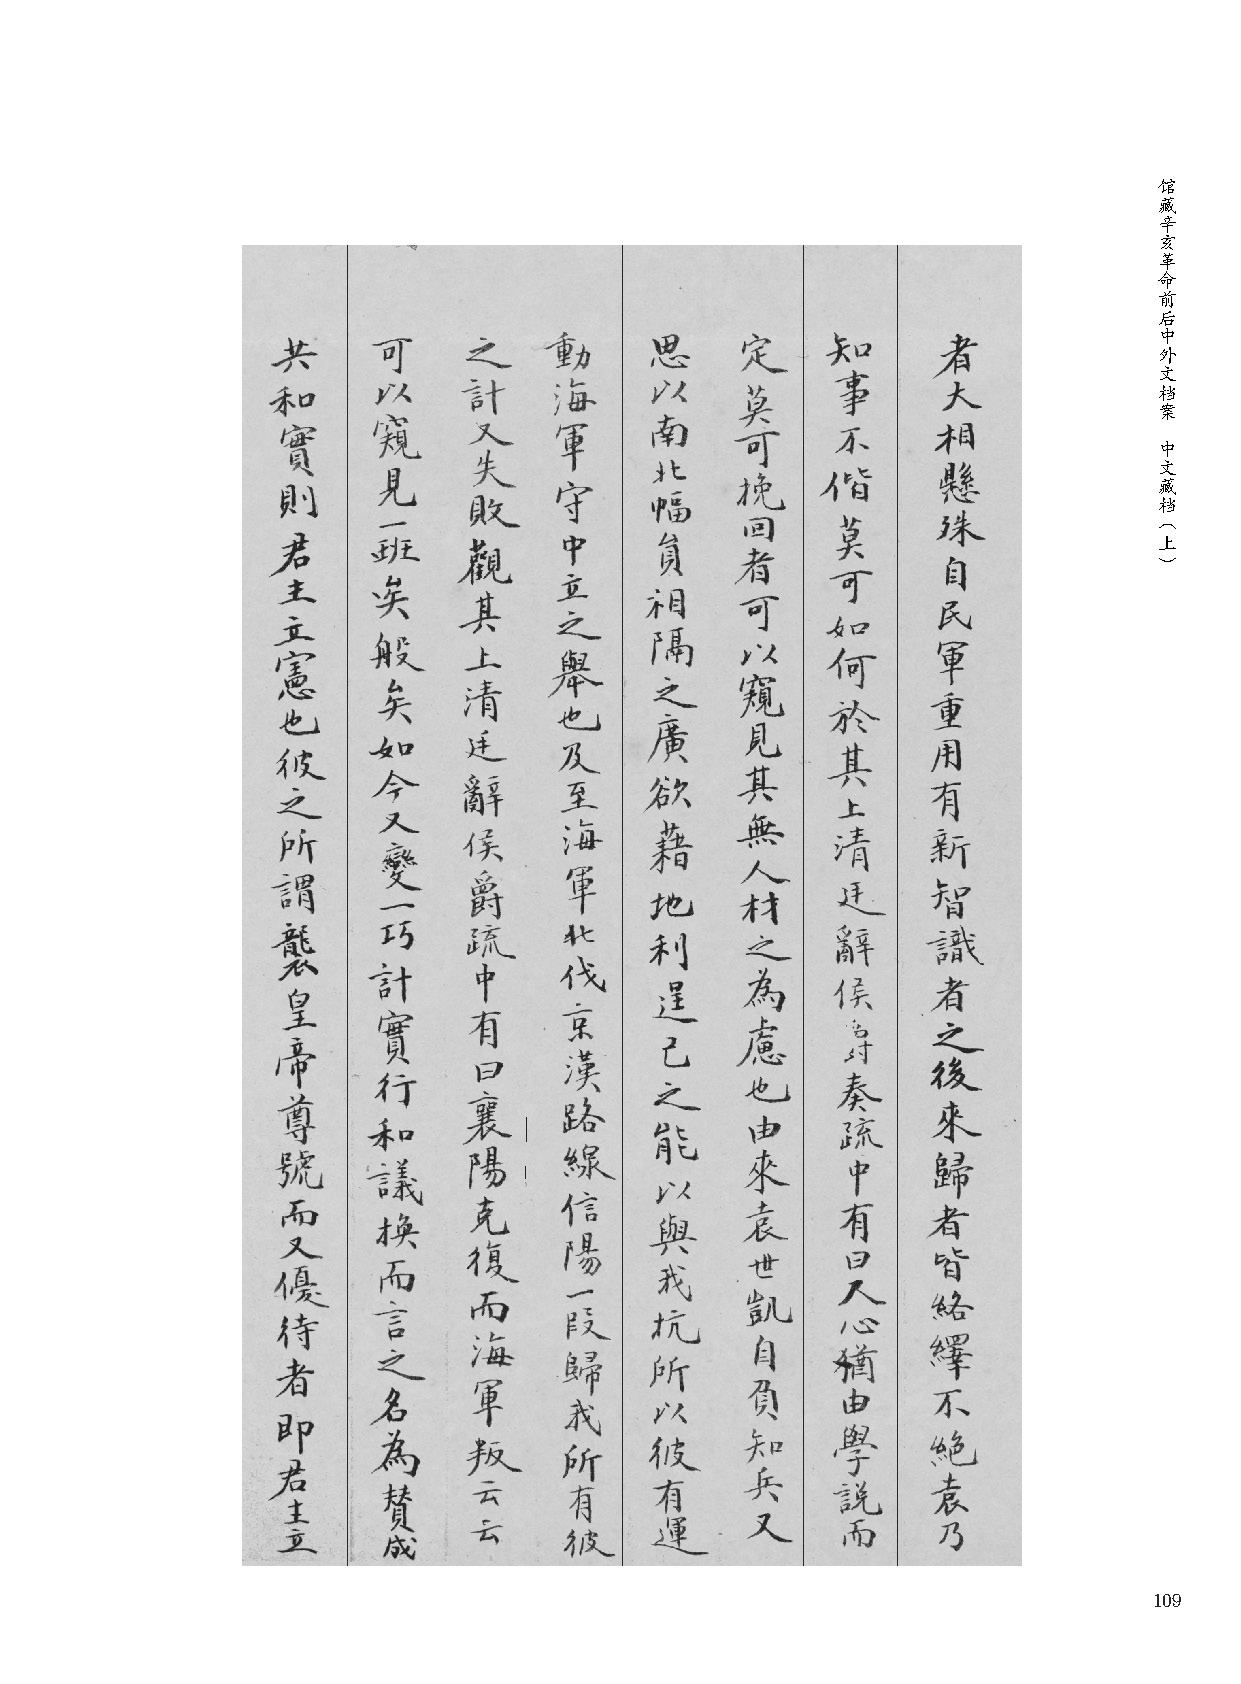 馆藏辛亥革命前后中外文档案　中文藏档（上）
者大相懸殊自民軍重用有新智識者之後來歸者皆絡繹不絕袁乃
知事不偕莫可如何於其上清廷辭侯爵奏疏中有曰人心猶由學説而
定莫可挽回者可以窺見其無人材之為慮也由來袁世凱自負知兵又
思以南北幅員相隔之廣欲藉地利逞己之能以與我抗所以彼有運
動海軍守中立之舉也及至海軍北伐京漢路線信陽一段歸我所有彼
之計又失敗觀其上清廷辭侯爵疏中有曰襄陽克復而海軍叛云云
可以窺見一班矣般矣如今又變一巧計實行和議換而言之名為賛成
共和實則君主立憲也彼之所謂襲皇帝尊號而又優待者即君主立
109